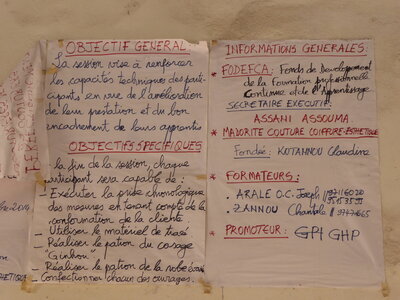 OBJECTIF GENERAL
La session vise à renforcer
les capacités techniques des parti-
cipants en vue de l'amélioration
de leur prestation et du bon
encadrement de leurs apprentis
OBJECTIFS SPECIFIQUES
la fin de la session, chaque
participant sera capable de :
- Exécuter la prise chronologique
des mesures en tenant compte de la
conformation de la cliente
- Utiliser le matériel de tracé
- Réaliser le patron du corsage
"Ginhou"
- Réaliser le patron de la robe
- Confectionner chacun des ouvrages.
INFORMATIONS GENERALES :
* FODEFCA : Fonds de Développement
de la Formation professionnelle
Continue et de l'Apprentissage
SECRETAIRE EXECUTIF :
ASSANI ASSOUMA
* MAJORITE COUTURE COIFFURE-ESTHETIQUE
Fondée : KOTANNOU Claudine
* FORMATEURS :
. ARALE O.C. Joseph //
. ZANNOU Chantale //
* PROMOTEUR : GPI GHP